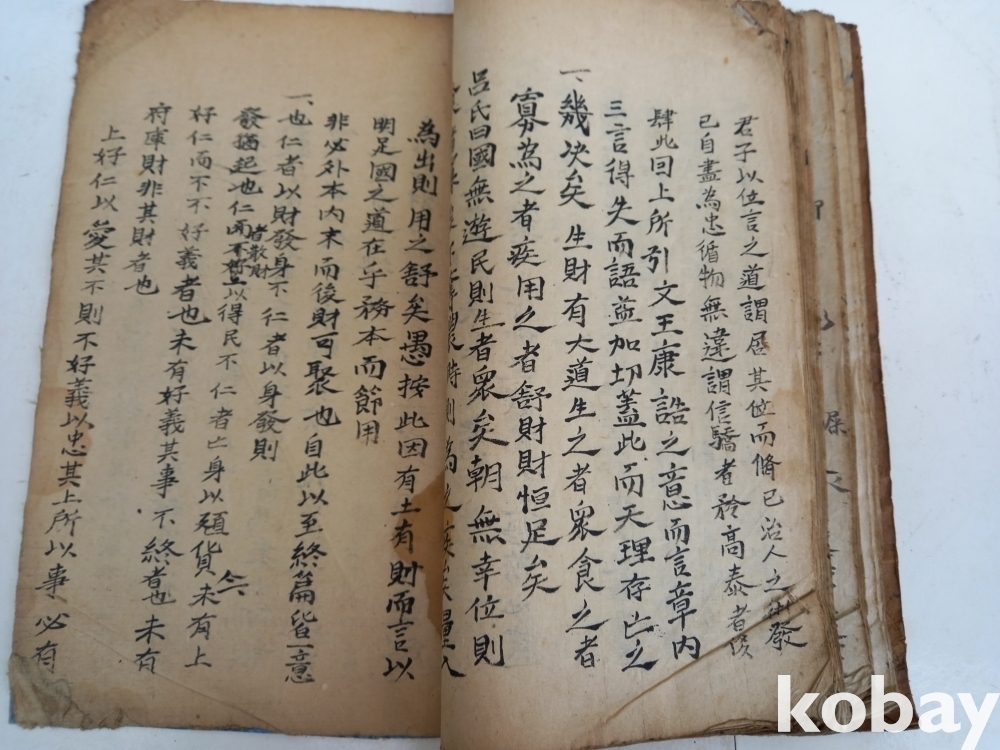 君子以位言之道謂居其位而脩己治人之術發
己自盡為忠循物無違謂信驕者矜高泰者侈
肆此因上所引文王康誥之意而言章内
三言得失而語益加切蓋此而天理存亡之
一、幾决矣 生財有大道生之者眾食之者
寡為之者疾用之者舒財財恒足矣
呂氏曰國無遊民則生者眾矣朝無幸位則
時則為之疾矣量入
為出則用之舒矣愚按此因有土有則而言以
明足國之道在乎務本而節用
非必外本内末而後財可聚也自此以至終篇皆一意
一、也仁者以財發身不仁者以身發則
發猶起也仁者散財以得民不仁者亡身以殖貨未有上
好仁而不不好義者也未有好義其事不終者也未有
府庫財非其財者也
上好仁以愛其不則不好義以忠其上所以事必有
kobay